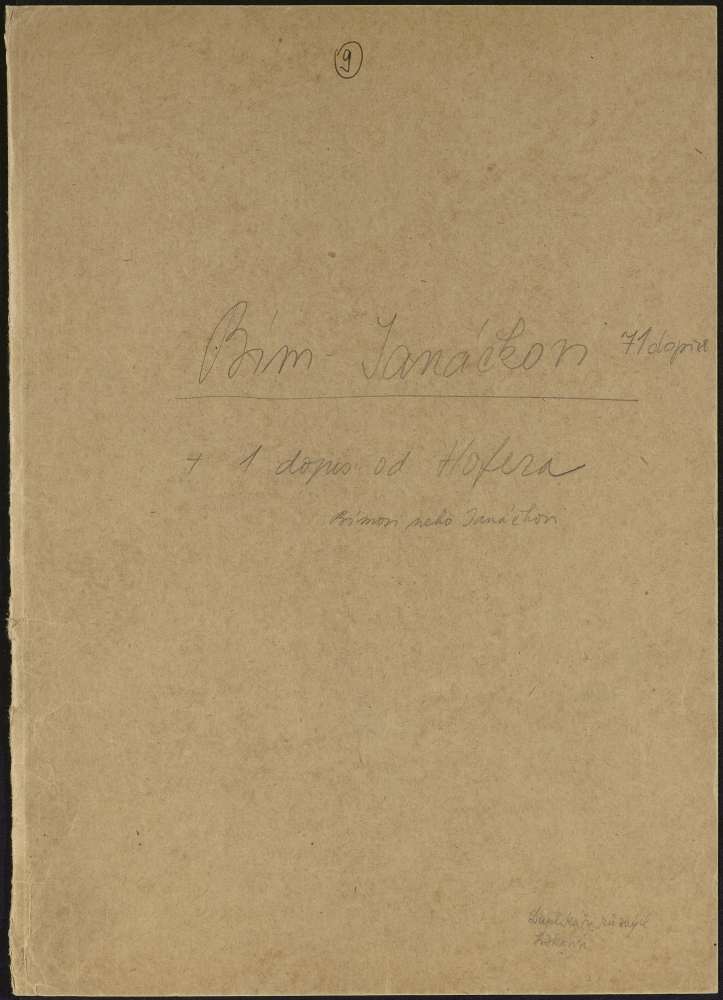 9
Bím - Janáčkovi 71 dopisů
+ 1 dopis od Hofera
Bímovi nebo Janáčkovi